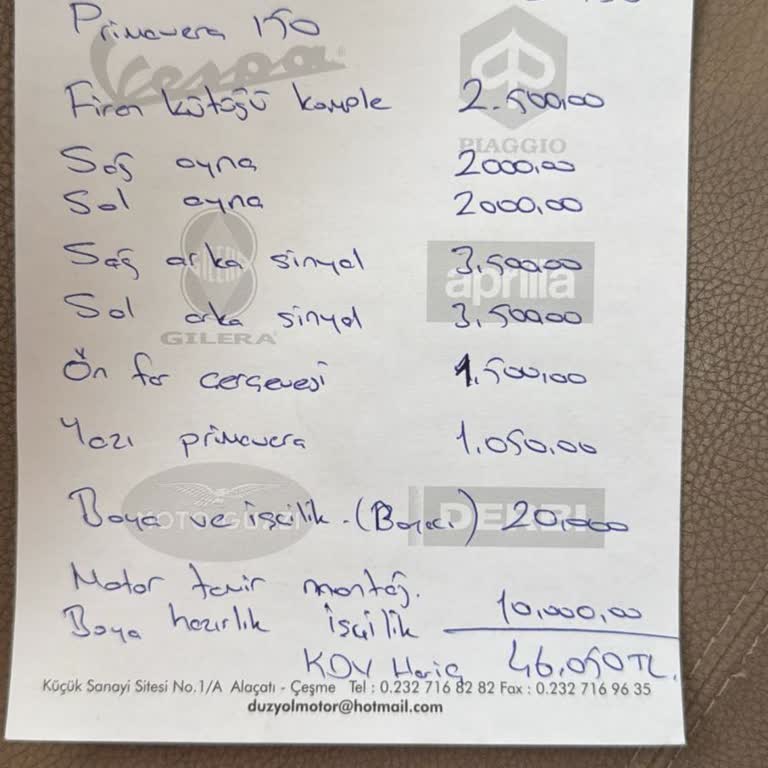 Primavera 150
Vespa
PIAGGIO
Firen kütüğü komple 2.500,00
Sağ ayna 2000,00
Sol ayna 2000,00
Sağ arka sinyal 3.500,00
aprilia
Sol arka sinyal 3.500,00
GILERA
Ön far çerçevesi 1.500,00
Yazı primavera 1.050,00
MOTO GUZZI
DERBI
Boya ve işçilik. (Boyacı) 20,000
Motor tamir montaj.
Boya hazırlık işçilik 10,000,00
KDV Hariç 46,050TL.
Küçük Sanayi Sitesi No.1/A Alaçatı - Çeşme Tel : 0.232 716 82 82 Fax : 0.232 716 96 35
duzyolmotor@hotmail.com